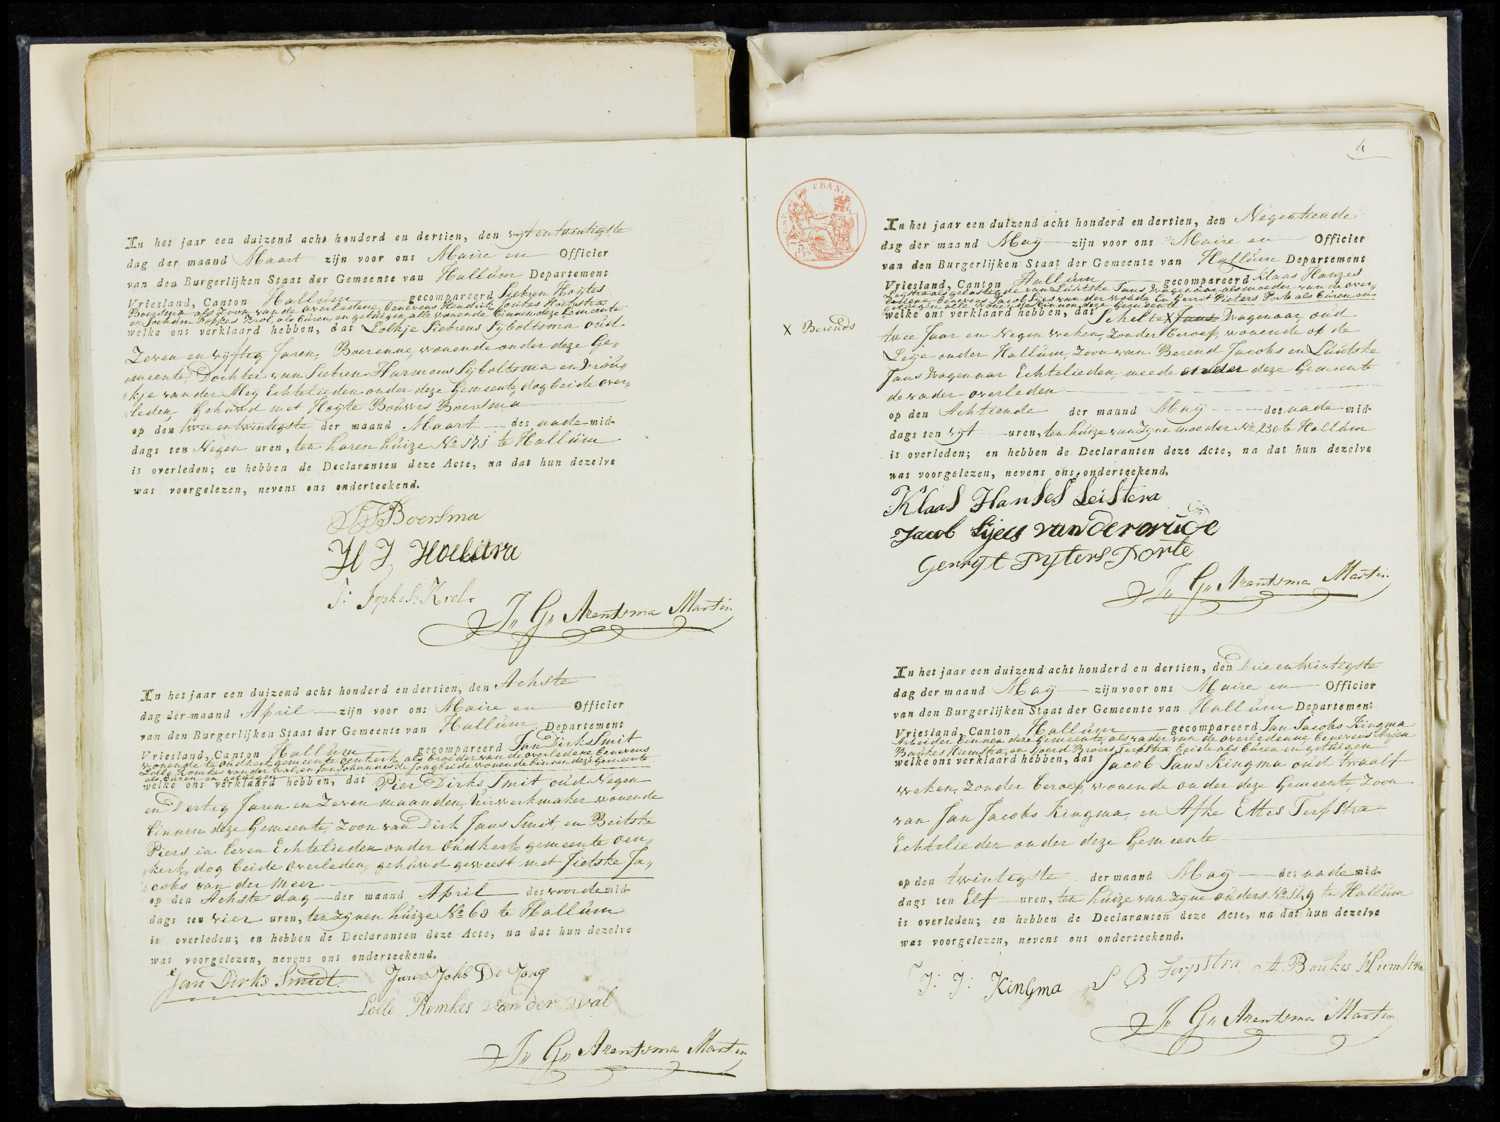 In het jaar een duizend acht honderd en dertien, den vyf en twintigste
dag der maand Maart zijn voor ons Maire en Officier
van den Burgerlijken Staat der Gemeente van Hallum Departement
Vriesland, Canton Hallum gecompareerd Siebren Hoijtes
Boersma als Zoon van de overledene benevens Hendrik Jouites
en als buren en getuigen alle wonende binnen deze Gemeente
welke ons verklaard hebben, dat Lolkje Siebrens Sijboltsma oud
Zeven en vyftig Jaren, Boerenne, wonende onder deze Ge-
meente, Dochter van Siebren Harmens Sijboltsma en Trijn-
tje van der Meij Echtelieden onder deze Gemeente dog beide over-
leden, Gehuwd met Hoijte Bouwes Boersma
op den twee en twintigste der maand Maart des nademid-
dags ten Negen uren, ten haren huize No 175 te Hallum
is overleden; en hebben de Declaranten deze Acte, na dat hun dezelve
was voorgelezen, nevens ons onderteekend.
S H Boersma
H J Hoekstra
J: Jopkes Krol
J. G. Arentsma Martin
In het jaar een duizend acht honderd en dertien, den Achste
dag der maand April zijn voor ons Maire en Officier
van den Burgerlijken Staat der Gemeente van Hallum Departement
Vriesland, Canton Hallum gecompareerd Jan Dirks Smit
wonende te Oudkerk gemeente Oenkerk, als broeder van de overledene benevens
Lolle Romkes van der Wal, en Jan Johannes de Jong beide wonende binnen deze Gemeente
als buren en getuigen
welke ons verklaard hebben, dat Pier Dirks Smit oud Negen
en Dertig Jaren en Zeven maanden, wonende
binnen deze Gemeente, Zoon van Dirk Jans Smit, en Beitske
Piers in leven Echtelieden onder Oudkerk gemeente Oen-
kerk, dog beide overleden, gehuwd geweest met Jietske Ja-
cobs van der Meer
op den Achste dag der maand April des voordemid-
dags ten vier uren, ten zynen huize No 60 te Hallum
is overleden; en hebben de Declaranten deze Acte, na dat hun dezelve
was voorgelezen, nevens ons onderteekend.
Jan Dirks Smidt Jan Johs De Jong
Lolle Romkes van der wal
J. G. Arentsma Martin
4
FRAN
In het jaar een duizend acht honderd en dertien, den Negentiende
dag der maand May zijn voor ons Maire en Officier
van den Burgerlijken Staat der Gemeente van Hallum Departement
Vriesland, Canton Hallum gecompareerd Klaas Hanzes
welke ons verklaard hebben, dat Schelte X Jans Wagenaar oud
X Berends
twee Jaar en Negen weken, Zonder beroep, wonende op de
Leije onder Hallum, Zoon van Berend Jacobs en Luutske
Jans Wagenaar Echtelieden, mede onder deze Gemeente
de vader overleden
op den Achttiende der maand May des nademid-
dags ten vyf uren, ten huize van zyne moeder No 230 te Hallum
is overleden; en hebben de Declaranten deze Acte, na dat hun dezelve
was voorgelezen, nevens ons onderteekend.
Klaas Hanses Leistra
Jacob Sijes van der woude
Gerryt Pyters Porte
J. G. Arentsma Martin
In het jaar een duizend acht honderd en dertien, den Drie en twintigste
dag der maand May zijn voor ons Maire en Officier
van den Burgerlijken Staat der Gemeente van Hallum Departement
Vriesland, Canton Hallum gecompareerd Jan Jacobs Kingma
Arbeider binnen deze Gemeente als vader van de overledene benevens Arjen
Baukes Hiemstra, en Sjoerd Broers Terpstra beide als buren en getuigen
welke ons verklaard hebben, dat Jacob Jans Kingma oud twaalf
weken, Zonder beroep, wonende onder deze Gemeente, Zoon
van Jan Jacobs Kingma, en Afke Ettes Terpstra
Echtelieden onder deze Gemeente
op den twintigste der maand May des nademid-
dags ten Elf uren, ten huize van zyne ouders No 149 te Hallum
is overleden; en hebben de Declaranten deze Acte, na dat hun dezelve
was voorgelezen, nevens ons onderteekend.
J: J: Kingma S B Terpstra A Baukes Hiemstra
J. G. Arentsma Martin